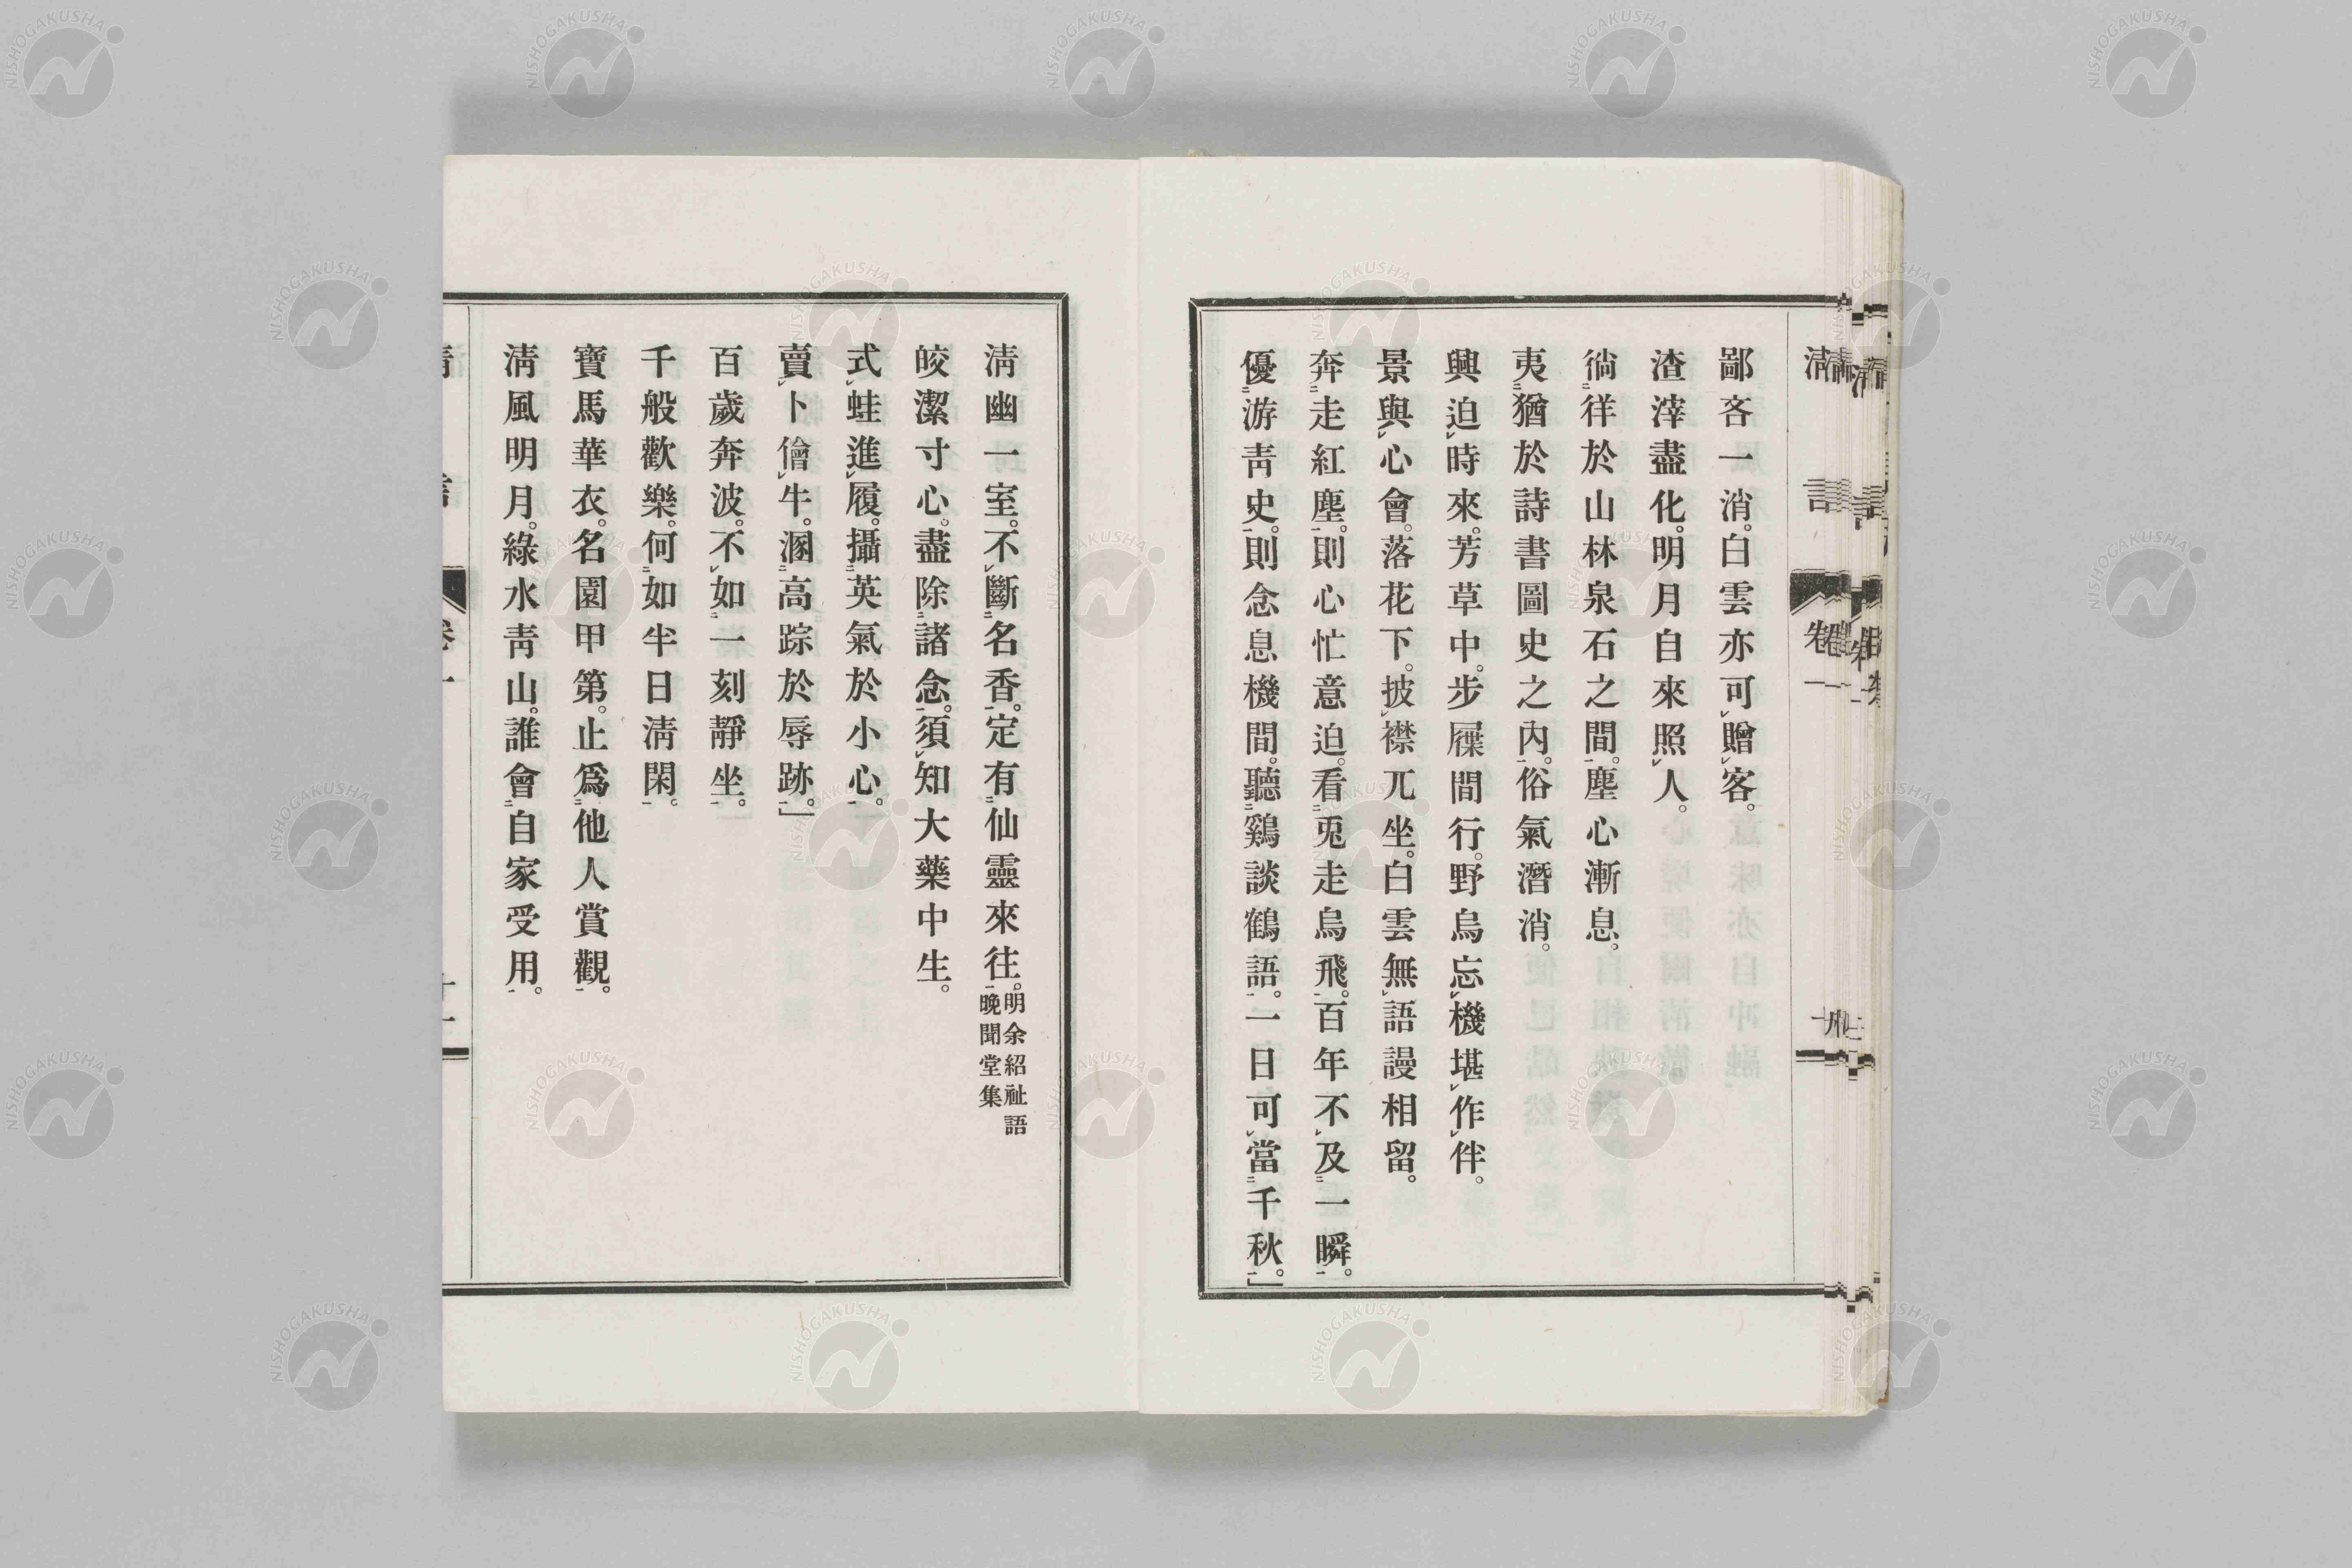 鄙吝一消。白雲亦可贈客。
渣滓盡化。明月自來照人。
徜徉於山林泉石之間。塵心漸息。
夷猶於詩書圖史之內。俗氣潛消。
興迫時來。芳草中。步屧間行。野鳥忘機堪作伴。
景與心會。落花下。披襟兀坐。白雲無語謾相留。
奔走紅塵。則心忙意迫。看兎走烏飛。百年不及一瞬。
優游靑史。則念息機間。聽鷄談鶴語。一日可當千秋。」
淸幽一室。不斷名香。定有仙靈來往。明余紹祉語
晩聞堂集
皎潔寸心。盡除諸念。須知大藥中生。
式蛙進履。攝英氣於小心。
賣卜儈牛。溷高踪於辱跡。」
百歲奔波。不如一刻靜坐。
千般歡樂。何如半日淸閑。
寶馬華衣。名園甲第。止爲他人賞觀。
淸風明月。綠水靑山。誰會自家受用。
淸言
卷一
NISHOGAKUSHA